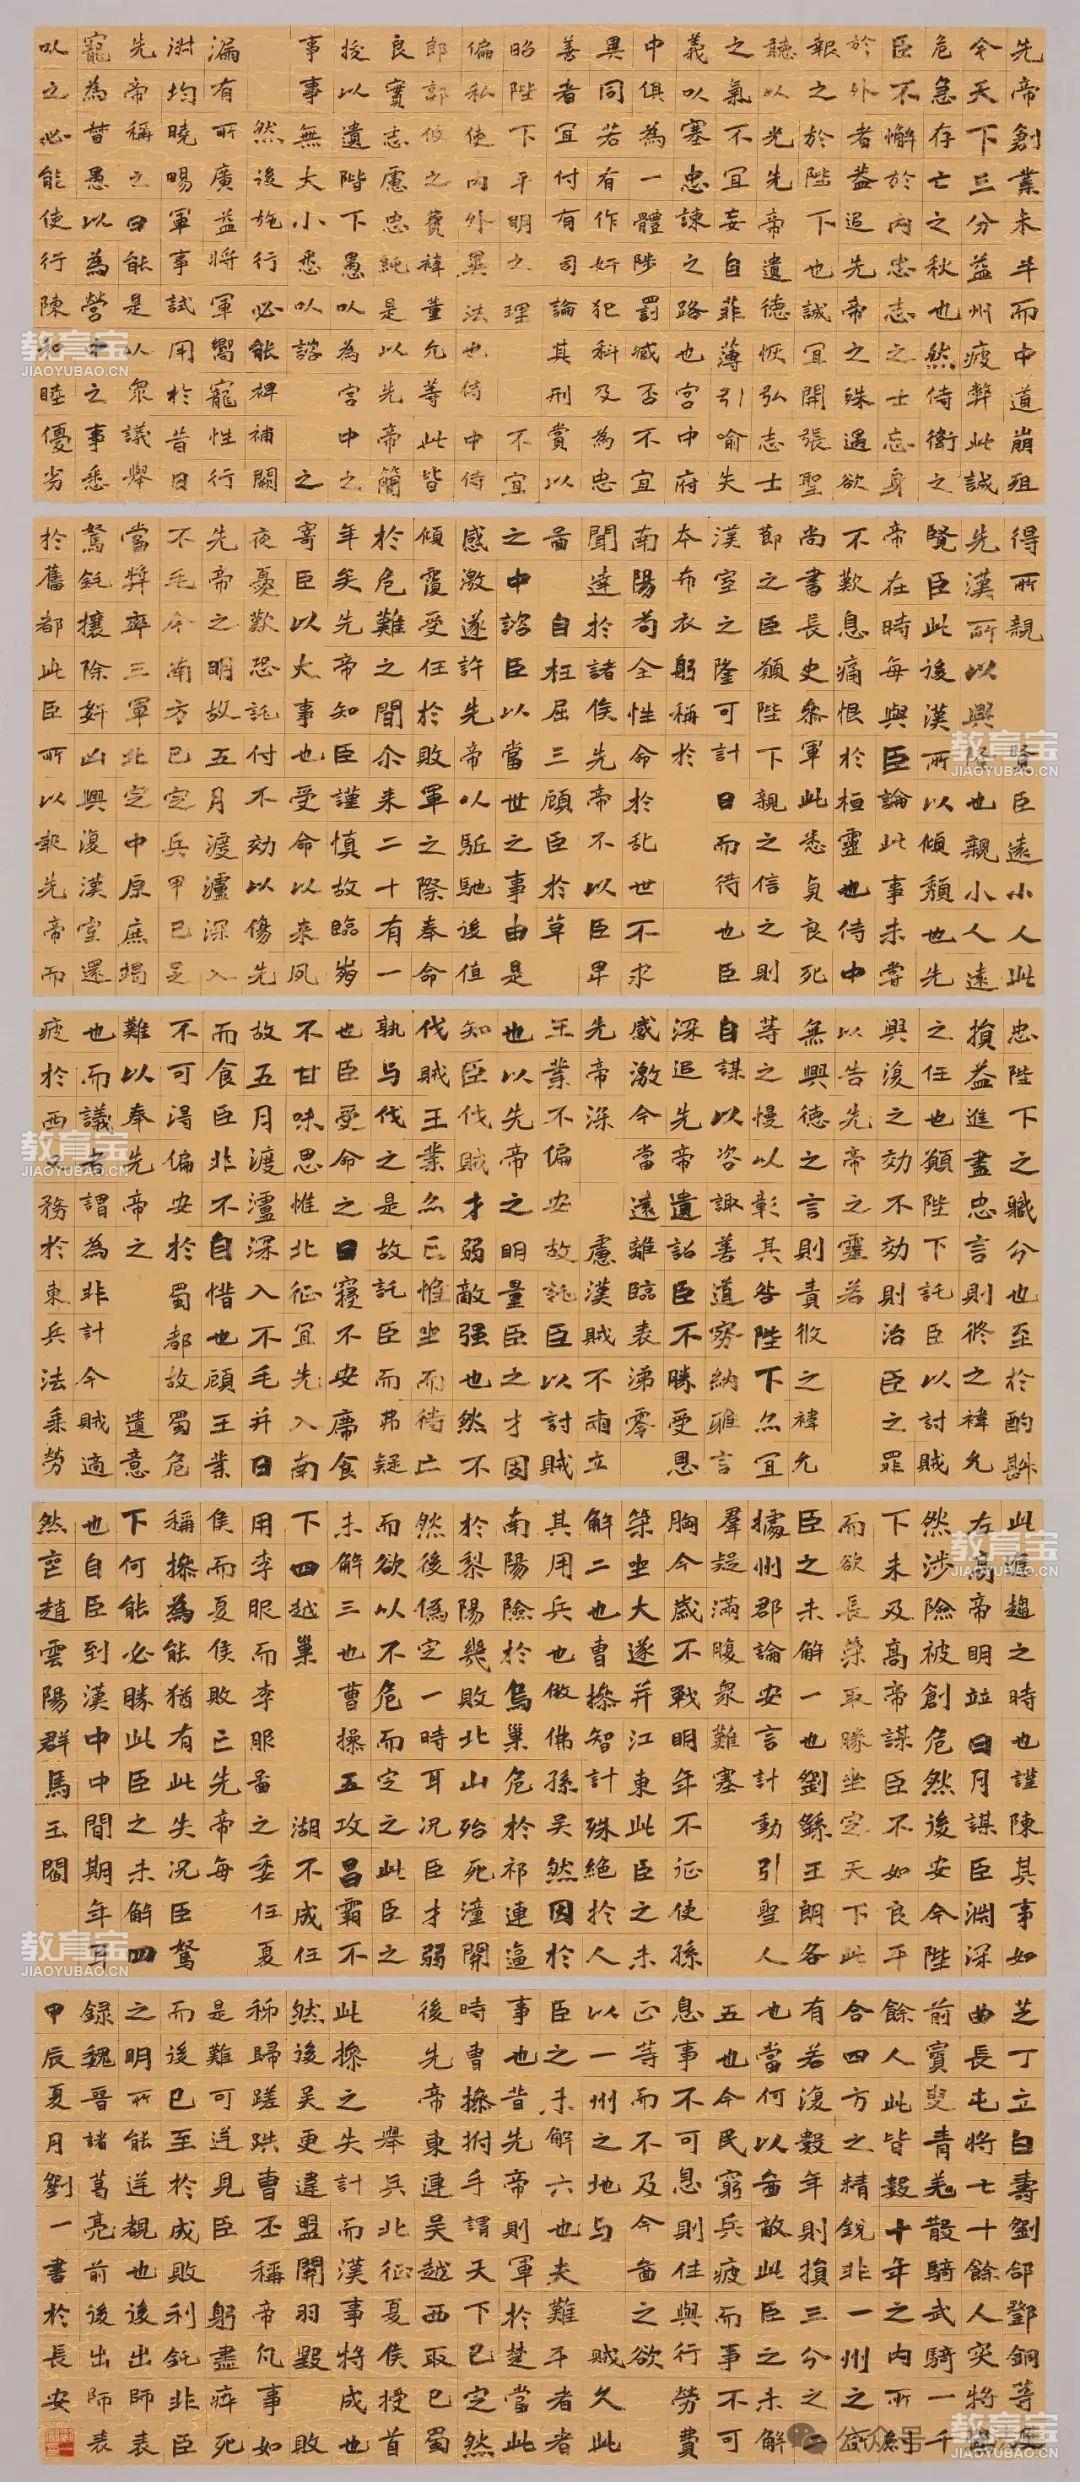 先帝創業未半而中道崩殂
今天下三分益州疲弊此誠
危急存亡之秋也然侍衛之
臣不懈於內忠志之士忘身
於外者蓋追先帝之殊遇欲
報之於陛下也誠宜開張聖
聽以光先帝遺德恢弘志士
之氣不宜妄自菲薄引喻失
義以塞忠諫之路也宮中府
中俱為一體陟罰臧否不宜
異同若有作奸犯科及為忠
善者宜付有司論其刑賞以
昭陛下平明之理不宜
偏私使內外異法也侍中侍
郎郭攸之費禕董允等此皆
良實志慮忠純是以先帝簡
授以遺陛下愚以為宮中之
事事無大小悉以諮之
然後施行必能裨補闕
漏有所廣益將軍嚮寵性行
淑均曉暢軍事試用於昔日
先帝稱之曰能是以眾議舉
寵為督愚以為營中之事悉
以之必能使行陳和睦優劣
得所親賢臣遠小人此
先漢所以興隆也親小人遠
賢臣此後漢所以傾頹也先
帝在時每與臣論此事未嘗
不歎息痛恨於桓靈也侍中
尚書長史參軍此悉貞良死
節之臣願陛下親之信之則
漢室之隆可計日而待也臣
本布衣躬稱於
南陽苟全性命於乱世不求
聞達於諸侯先帝不以臣卑
啚自枉屈三顧臣於草
之中諮臣以當世之事由是
感激遂許先帝以駈馳後值
傾覆受任於敗軍之際奉命
於危難之間尒来二十有一
年矣先帝知臣謹慎故臨崩
寄臣以大事也受命以来夙
夜憂歎恐託付不効以傷先
先帝之明故五月渡瀘深入
不毛今南方已定兵甲已足
當獎率三軍北定中原庶竭
駑鈍攘除奸凶興復漢室還
於舊都此臣所以報先帝而
忠陛下之職分也至於酌斟
損益進盡忠言則攸之禕允
之任也願陛下託臣以討賊
興復之効不効則治臣之罪
以告先帝之靈若
無興德之言則責攸之禕允
等之慢以彰其咎陛下亦宜
自謀以咨諏善道察納雅言
深追先帝遺詔臣不勝受恩
感激今當遠離臨表涕零
先帝深慮漢賊不兩立
王業不偏安故託臣以討賊
也以先帝之明量臣之才固
知臣伐賊才弱敵强也然不
伐賊王業亦亡惟坐而待亡
孰与伐之是故託臣而弗疑
也臣受命之日寢不安席食
不甘味思惟北征宜先入南
故五月渡瀘深入不毛并日
而食臣非不自惜也顧王業
不可得偏安於蜀都故蜀危
難以奉先帝之遺意
也而議者謂為非計今賊適
疲於西又務於東兵法乘勞
此進趨之時也謹陳其事如
左高帝明竝日月謀臣淵深
然涉險被創危然後安今陛
下未及高帝謀臣不如良平
而欲長策取勝坐定天下此
臣之未解一也劉繇王朗各
據州郡論安言計動引聖人
羣疑滿腹眾難塞
胸今歲不戰明年不征使孫
策坐大遂并江東此臣之未
解二也曹操智計殊絕於人
其用兵也倣佛孫吳然困於
南陽險於烏巢危於祁連逼
於黎陽幾敗北山殆死潼關
然後僞定一時耳況臣才弱
而欲以不危而定之此臣之
未解三也曹操五攻昌霸不
下四越巢湖不成任
用李服而李服啚之委任夏
侯而夏侯敗亡先帝每
稱操為能猶有此失況臣駑
下何能必勝此臣之未解四
也自臣到漢中中間期年耳
然喪趙雲陽群馬玉閻
芝丁立白壽劉郃鄧銅等及
曲長屯將七十餘人突將
前賨叟青羌散騎武騎一千
餘人此皆數十年之內所糾
合四方之精銳非一州之所
有若復數年則損三分之二
也當何以啚敵此臣之未解
五也今民窮兵疲而事不可
息事不可息則住與行勞費
正等而不及今啚之欲
以一州之地与賊久此
臣之未解六也夫難平者
事也昔先帝則軍於楚當此
時曹操拊手謂天下已定然
後先帝東連吳越西取巴蜀
舉兵北征夏侯授首
此操之失計而漢事將成也
然後吳更違盟關羽毀敗
秭歸蹉跌曹丕稱帝凡事如
是難可逆見臣躬盡瘁死
而後已至於成敗利鈍非臣
之明所能逆覩也後出師表
錄魏晉諸葛亮前後出師表
甲辰夏月劉一書於長安
教育宝
JIAOYUBAO.CN
教育宝
JIAOYUBAO.CN
教育宝
JIAOYUBAO.CN
教育宝
JIAOYUBAO.CN
教育宝
JIAOYUBAO.CN
教育宝
JIAOYUBAO.CN
公众号